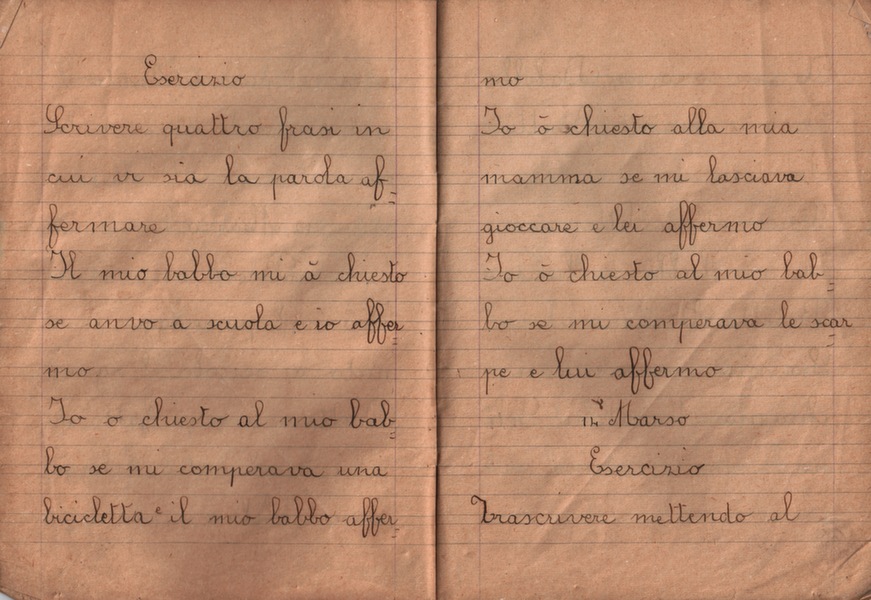 Esercizio
Scrivere quattro frasi in
cui vi sia la parola af=
fermare
Il mio babbo mi ā chiesto
se anvo a scuola e io affer=
mo.
Io o chiesto al mio bab=
bo se mi comperava una
bicicletta e il mio babbo affer=
mo
Io ō chiesto alla mia
mamma se mi lasciava
gioccare e lei affermo
Io ō chiesto al mio bab=
bo se mi comperava le scar=
pe e lui affermo
Marso
Esercizio
Trascrivere mettendo al